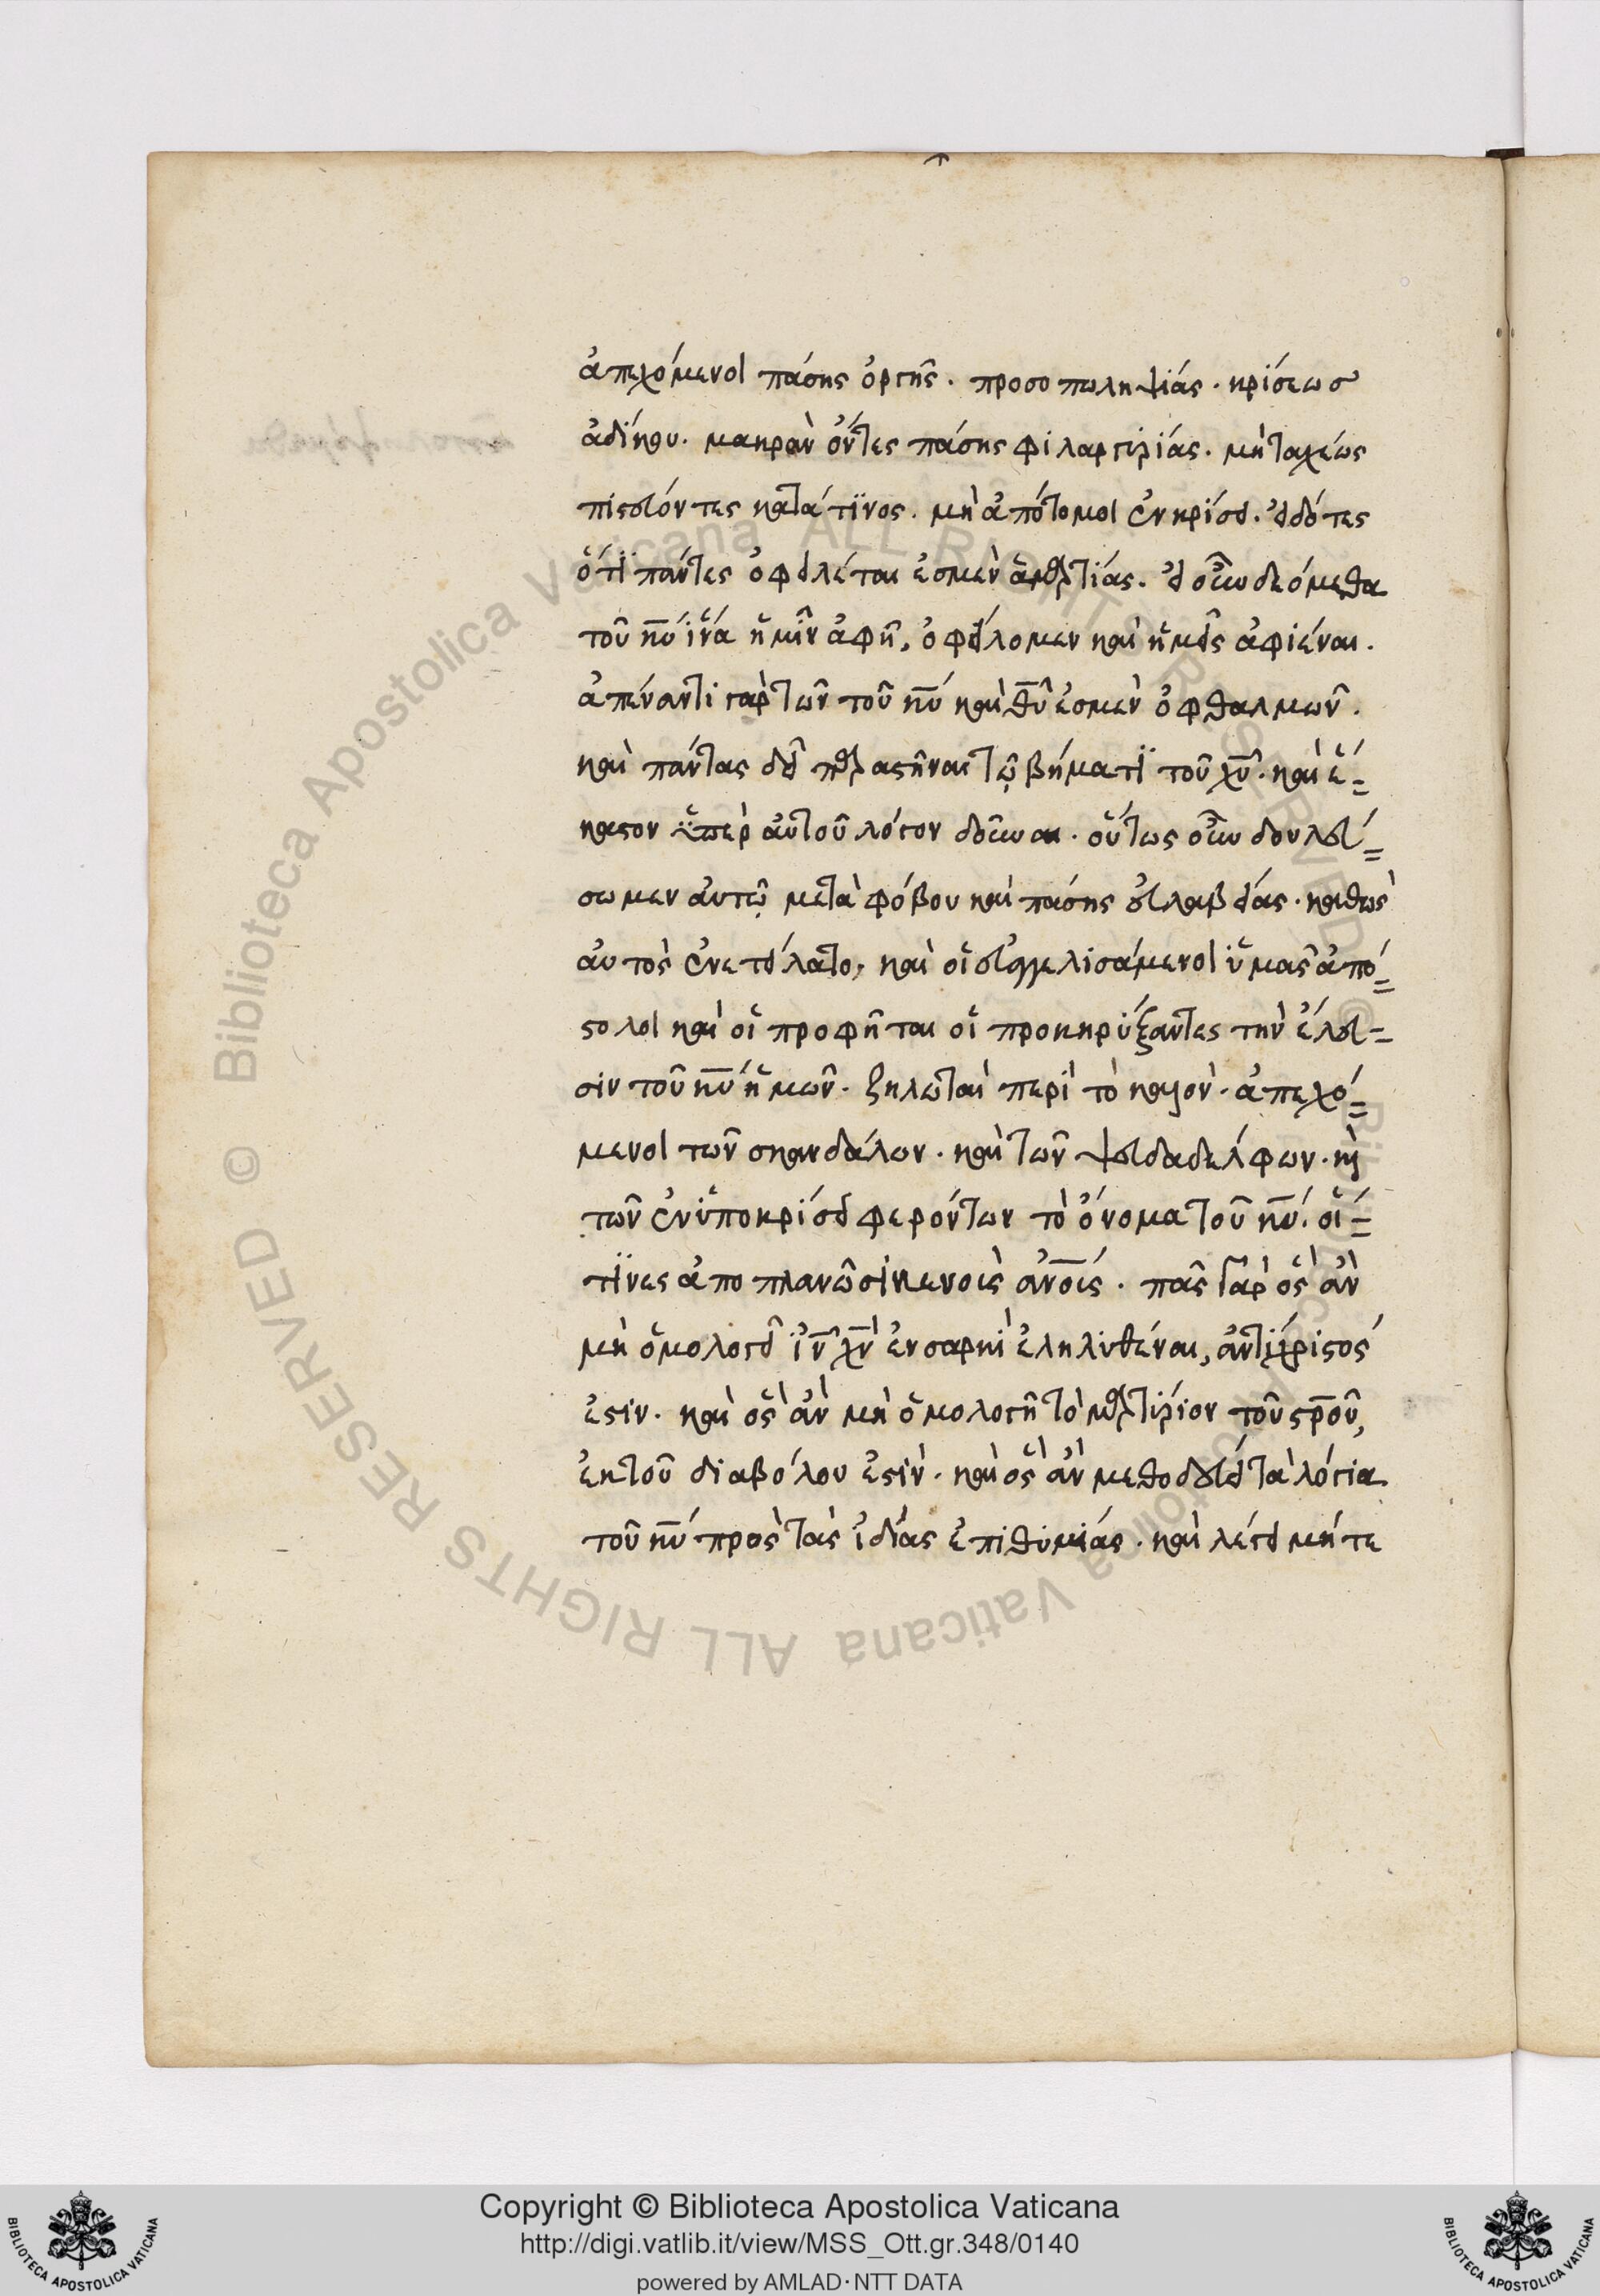 ἀπεχόμενοι πάσης ὀργῆς. προσοπωληψίας. κρίσεως
ἀδίκου. μακρὰν ὄντες πάσης φιλαργυρίας. μὴ ταχέως
πιστεύοντες κατάτϊνος. μὴ ἀπότομοι ἐν κρίσει. εἰδότες
ὅτϊ πάντες ὀφειλέται ἐσμὲν ἁμαρτίας. εἰ οὖν δεόμεθα
τοῦ κ̅υ̅ ἵνα ἡμῖν ἀφῆ, ὀφείλομεν καὶ ἡμεῖς ἀφιέναι.
ἀπέναντι γὰρ τῶν τοῦ κ̅υ̅ καὶ θ̅υ̅ ἐσμὲν ὀφθαλμῶν.
καὶ πάντας δεῖ παραστῆναι τῷ βήματϊ τοῦ χ̅υ̅. καὶ ἕ=
καστον ὑπὲρ αὑτοῦ λόγον δοῦναι. οὕτως οὖν δουλεύ=
σωμεν αὐτῷ μετὰ φόβου καὶ πάσης εὐλαβείας. καθὼς
αὐτὸς ἐνετείλατο, καὶ οἱ εὐαγγελισάμενοι ὑμᾶς ἀπό=
στολοι καὶ οἱ προφῆται οἱ προκηρύξαντες τὴν ἔλευ=
σιν τοῦ κ̅υ̅ ἡμῶν. ζηλωταὶ περὶ τὸ καλὸν. ἀπεχό=
μενοι τῶν σκανδάλων. καὶ τῶν ψευδαδέλφων. κ̀
τῶν ἐν ὑποκρίσει φερόντων τὸ ὄνομα τοῦ κ̅υ̅. οἵ=
τϊνες ἀποπλανῶσι κενοὺς ἀν̅ο̅υ̅ς. πᾶς γὰρ ὃς ἂν
μὴ ὁμολογεῖ ἰ̅ν̅ χ̅ν̅ ἐν σαρκὶ ἐληλυθέναι, ἀντίχριστός
ἐστιν. καὶ ὃς ἂν μὴ ὁμολογῆ τὸ μαρτύριον τοῦ σ̅ρ̅ο̅ῦ̅,
ἐκ τοῦ διαβόλου ἐστὶν. καὶ ὃς ἂν μεθοδεύει τὰ λόγια
τοῦ κ̅υ̅ πρὸς τὰς ἰδίας ἐπιθυμίας. καὶ λέγει μήτε
Copyright © Biblioteca Apostolica Vaticana
http://digi.vatlib.it/view/MSS_Ott.gr.348/0140
powered by AMLAD·NTT DATA
BIBLIOTECA APOSTOLICA VATICANA
BIBLIOTECA APOSTOLICA VATICANA
© Biblioteca Apostolica Vaticana ALL RIGHTS RESERVED © Biblioteca Apostolica Vaticana ALL RIGHTS RESERVED